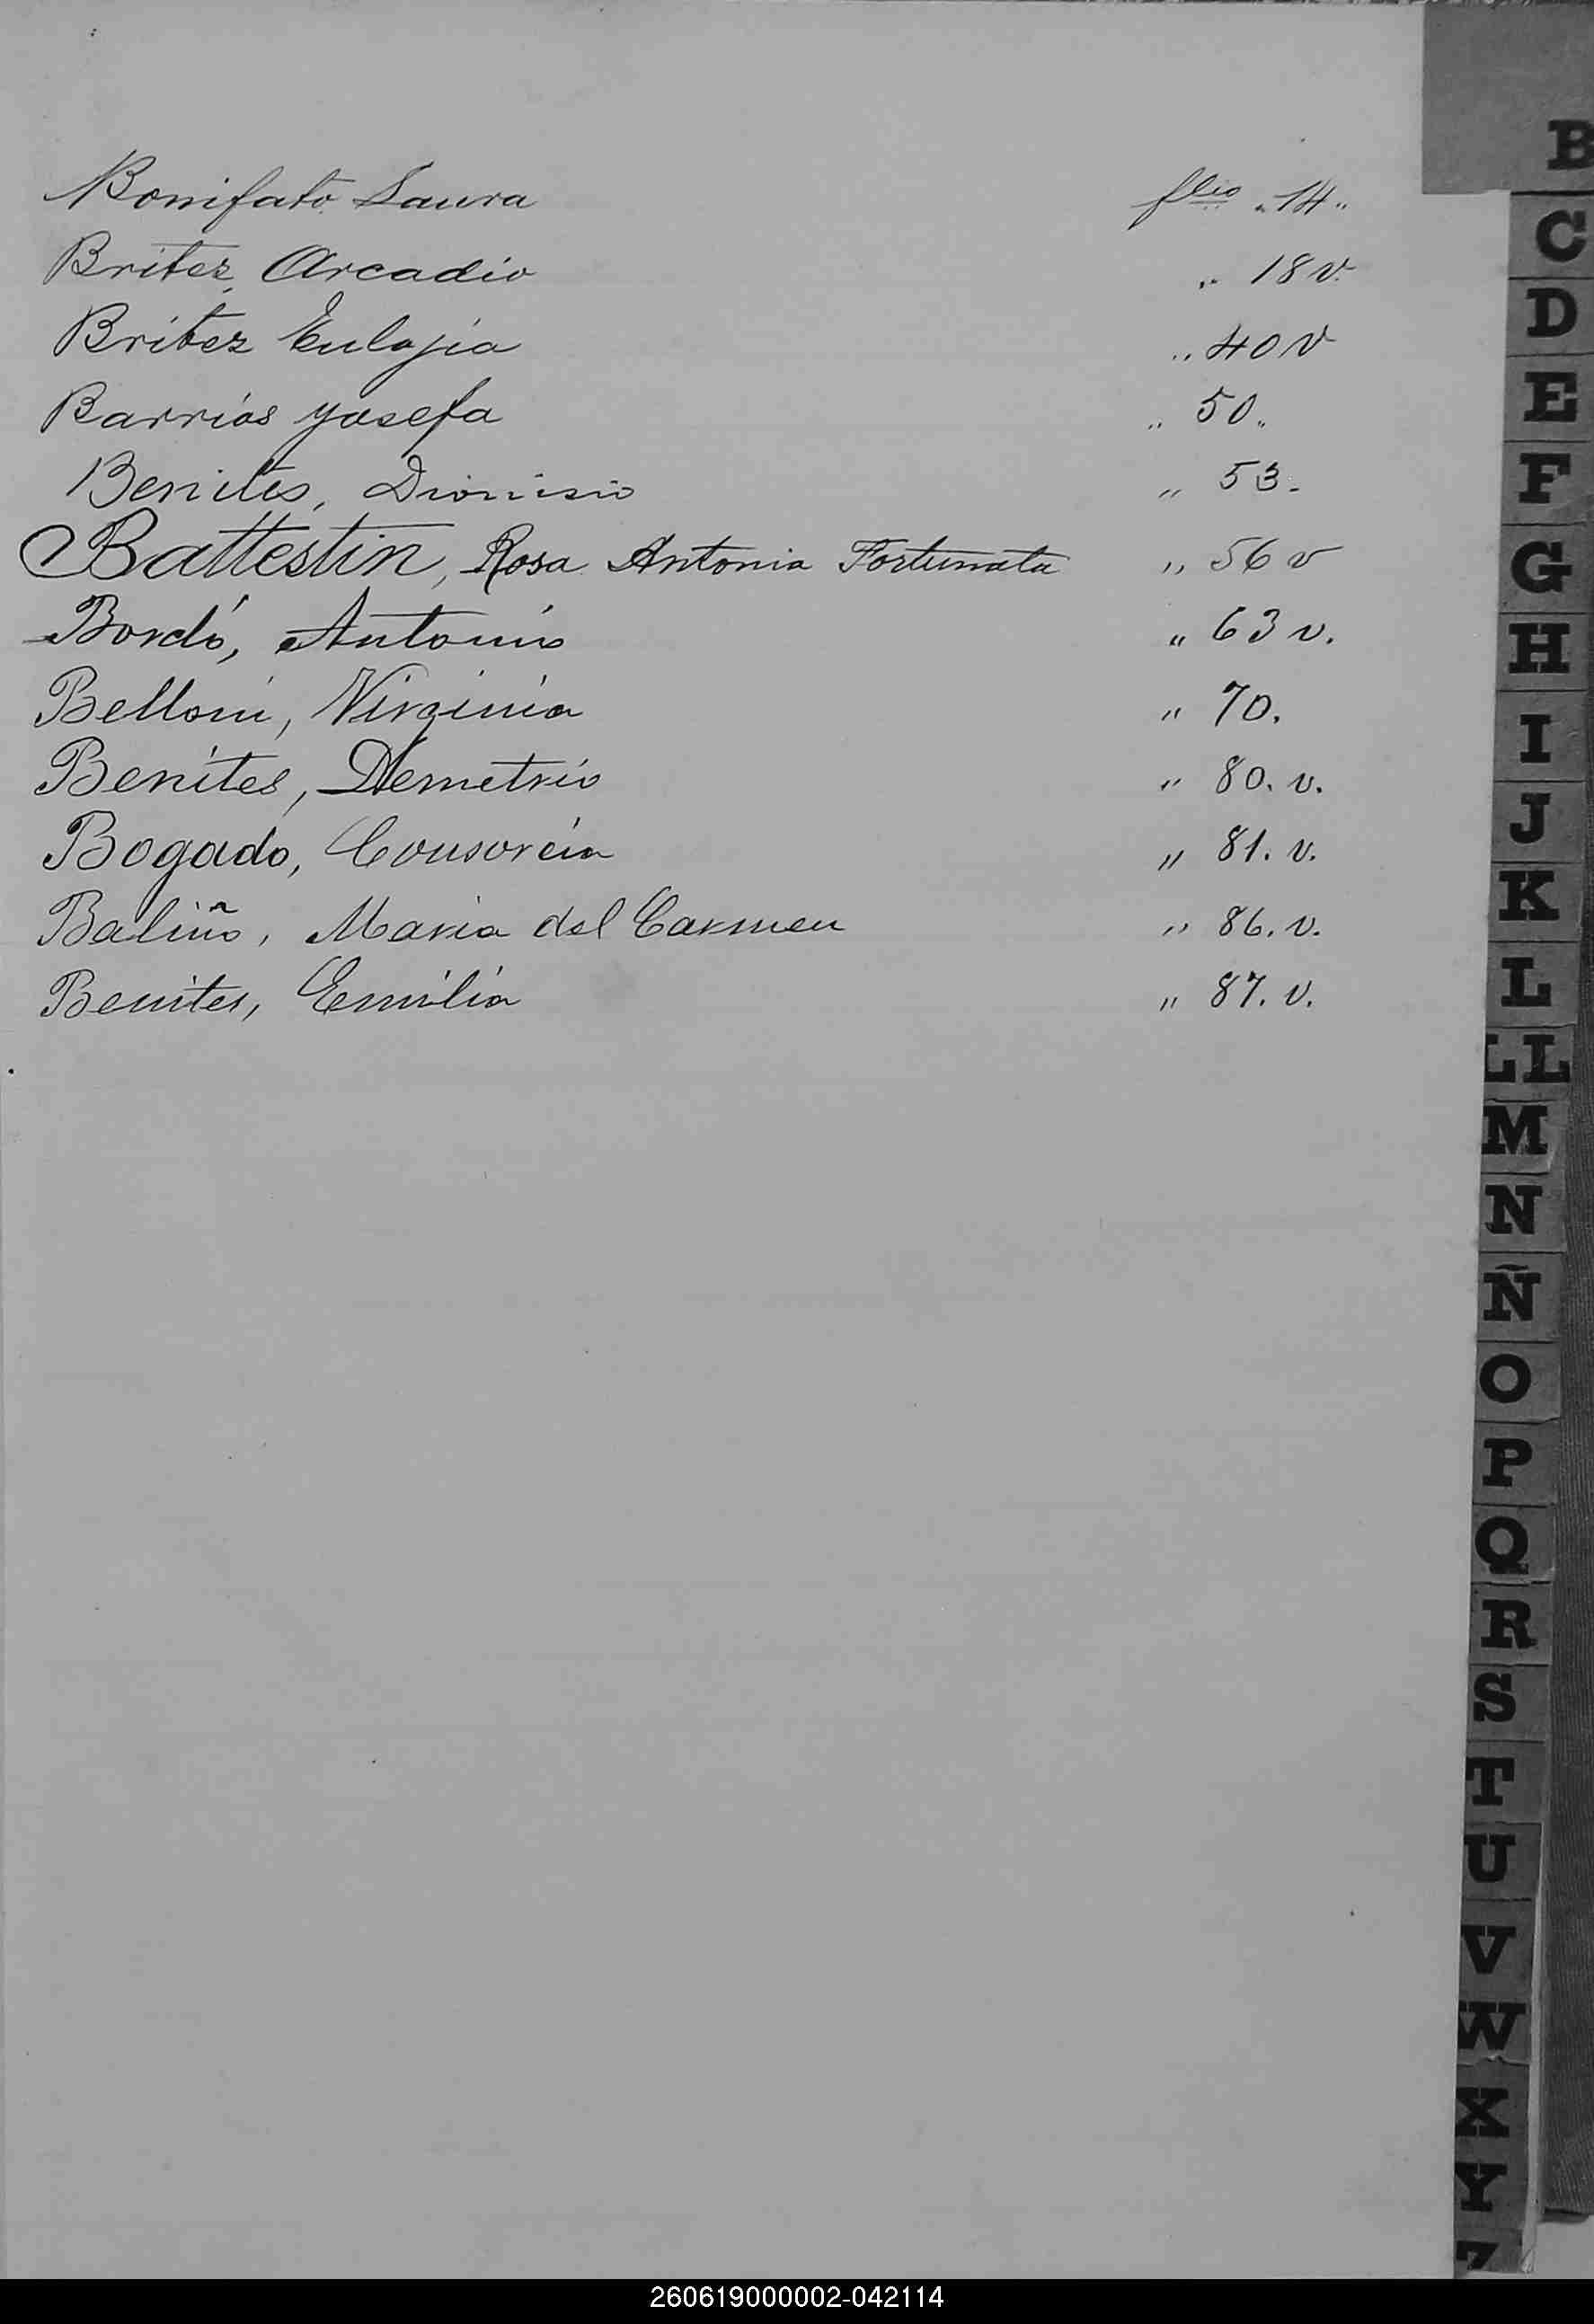 Bonifato Laura flio „ 14 „
Britez, Arcadio „ 18 v.
Britez Eulojia „ 40 v
Barrios Josefa „ 50 „
Benites, Dionisio „ 53.
Battestin, Rosa Antonia Fortunata „ 56 v
Bordó, Antonio „ 63 v.
Belloni, Virginia „ 70.
Benites, Demetrio „ 80. v.
Bogado, „ 81. v.
Baliño, Maria del Carmen „ 86. v.
Benites, Emilia „ 87. v.
B
C
D
E
F
G
H
I
J
K
L
LL
M
N
Ñ
O
P
Q
R
S
T
U
V
W
X
Y
Z
260619000002-042114